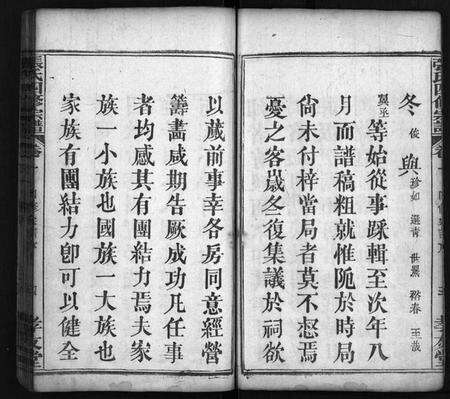 冬俊與珍如選青世勲裕春玉成
翼丞等始從事蹂輯至次年八
月而譜稿粗就惟阨於時局
尙未付梓當局者莫不惄焉
憂之客歲冬復集議於祠欲
以蕆前事幸各房同意經營
籌畫咸期告厥成功凡任事
者均感其有團結力焉夫家
族一小族也國族一大族也
家族有團結力卽可以健全
張氏四修宗譜
孝友堂